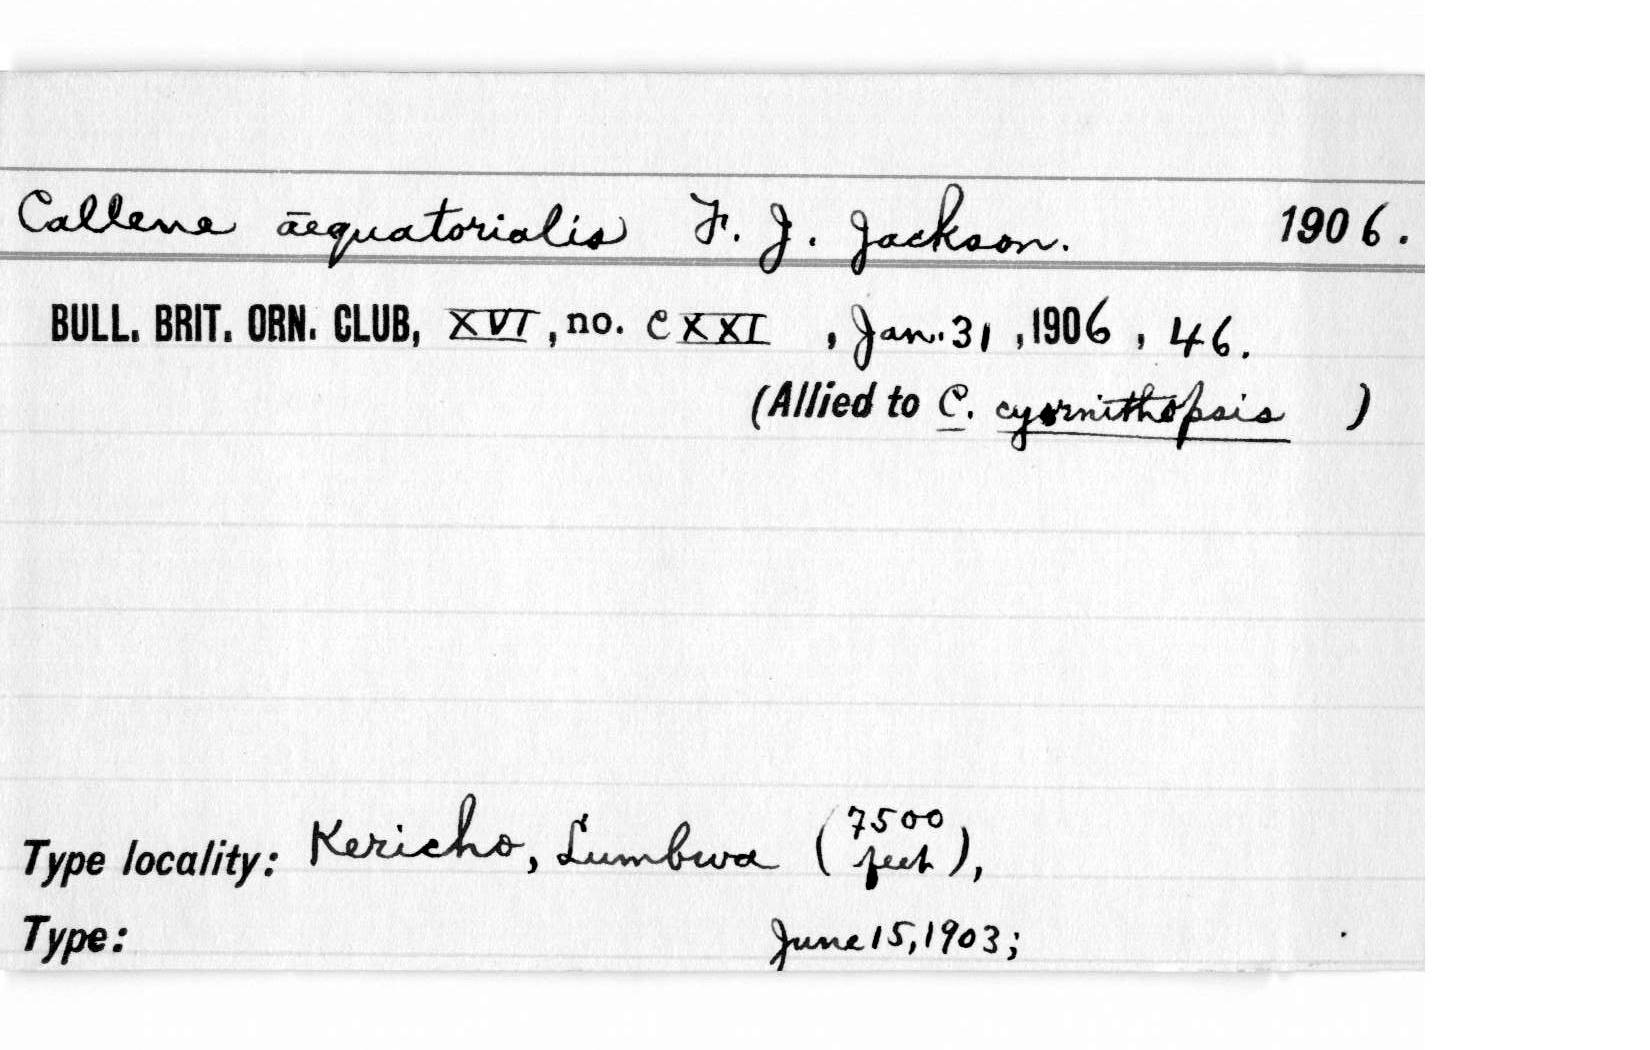 Callene āequatorialis F. J. Jackson. 1906.
BULL. BRIT. ORN. CLUB, XVI, no. CXXI, Jan. 31, 1906, 46.
(Allied to C. cyornithopsis )
Type locality: Kericho, Lumbwa (7500 feet),
Type: June 15, 1903;